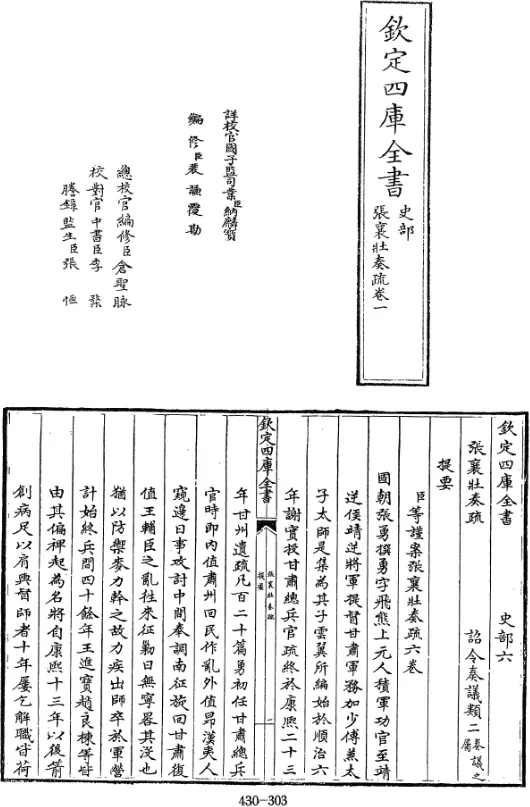 欽定四庫全書
史部
張襄壯奏疏卷一
詳校官國子監司業臣納麟寶
編修臣裴謙覆勘
總校官編修臣倉聖脉
校對官中書臣李
謄錄監生臣張恒
欽定四庫全書 史部六
張襄壯奏疏 詔令奏議類二奏議之屬
提要
臣等謹案張襄壯奏疏六卷
國朝張勇撰勇字飛熊上元人積軍功官至靖
逆侯靖逆將軍提督甘肅軍務加少傅兼太
子太師是集為其子雲翼所編始於順治六
年謝實授甘肅總兵官疏終於康熙二十三
欽定四庫全書
張襄壯奏疏
提要
一
年甘州遺疏凡百二十篇勇初任甘肅總兵
官時即內值肅州回民作亂外值昻漢夷人
窺邊日事攻討中間奉調南征旋回甘肅復
值王輔臣之亂往來征勦日無寧晷其沒也
猶以防禦麥力幹之故力疾出師卒於軍營
計始終兵間四十餘年王進寶趙良棟等皆
由其偏裨起為名將自康熙十三年以後箭
創病足以肩輿督師者十年屢乞解職皆荷
430-303